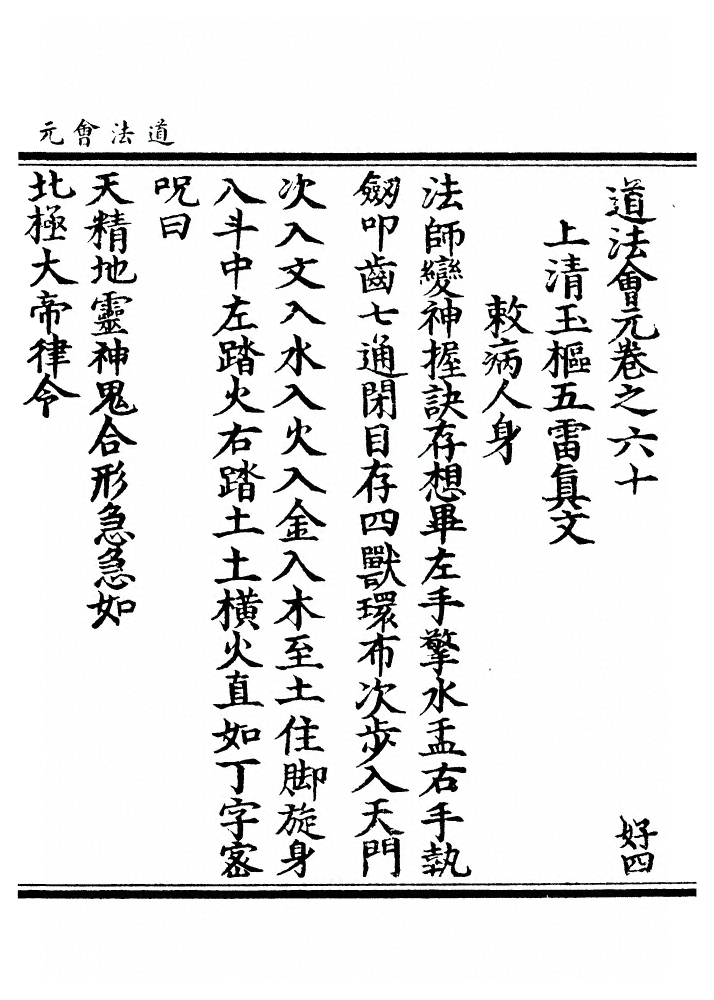 道法會元
道法會元卷之六十
好四
上清玉樞五雷眞文
敕病人身
法師變神握訣存想畢左手擎水盂右手執
劒叩齒七通閉目存四獸環布次步入天門
次入文入水入火入金入木至土住脚旋身
入斗中左踏火右踏土土橫火直如丁字密
呪曰
天精地靈神鬼合形急急如
北極大帝律令